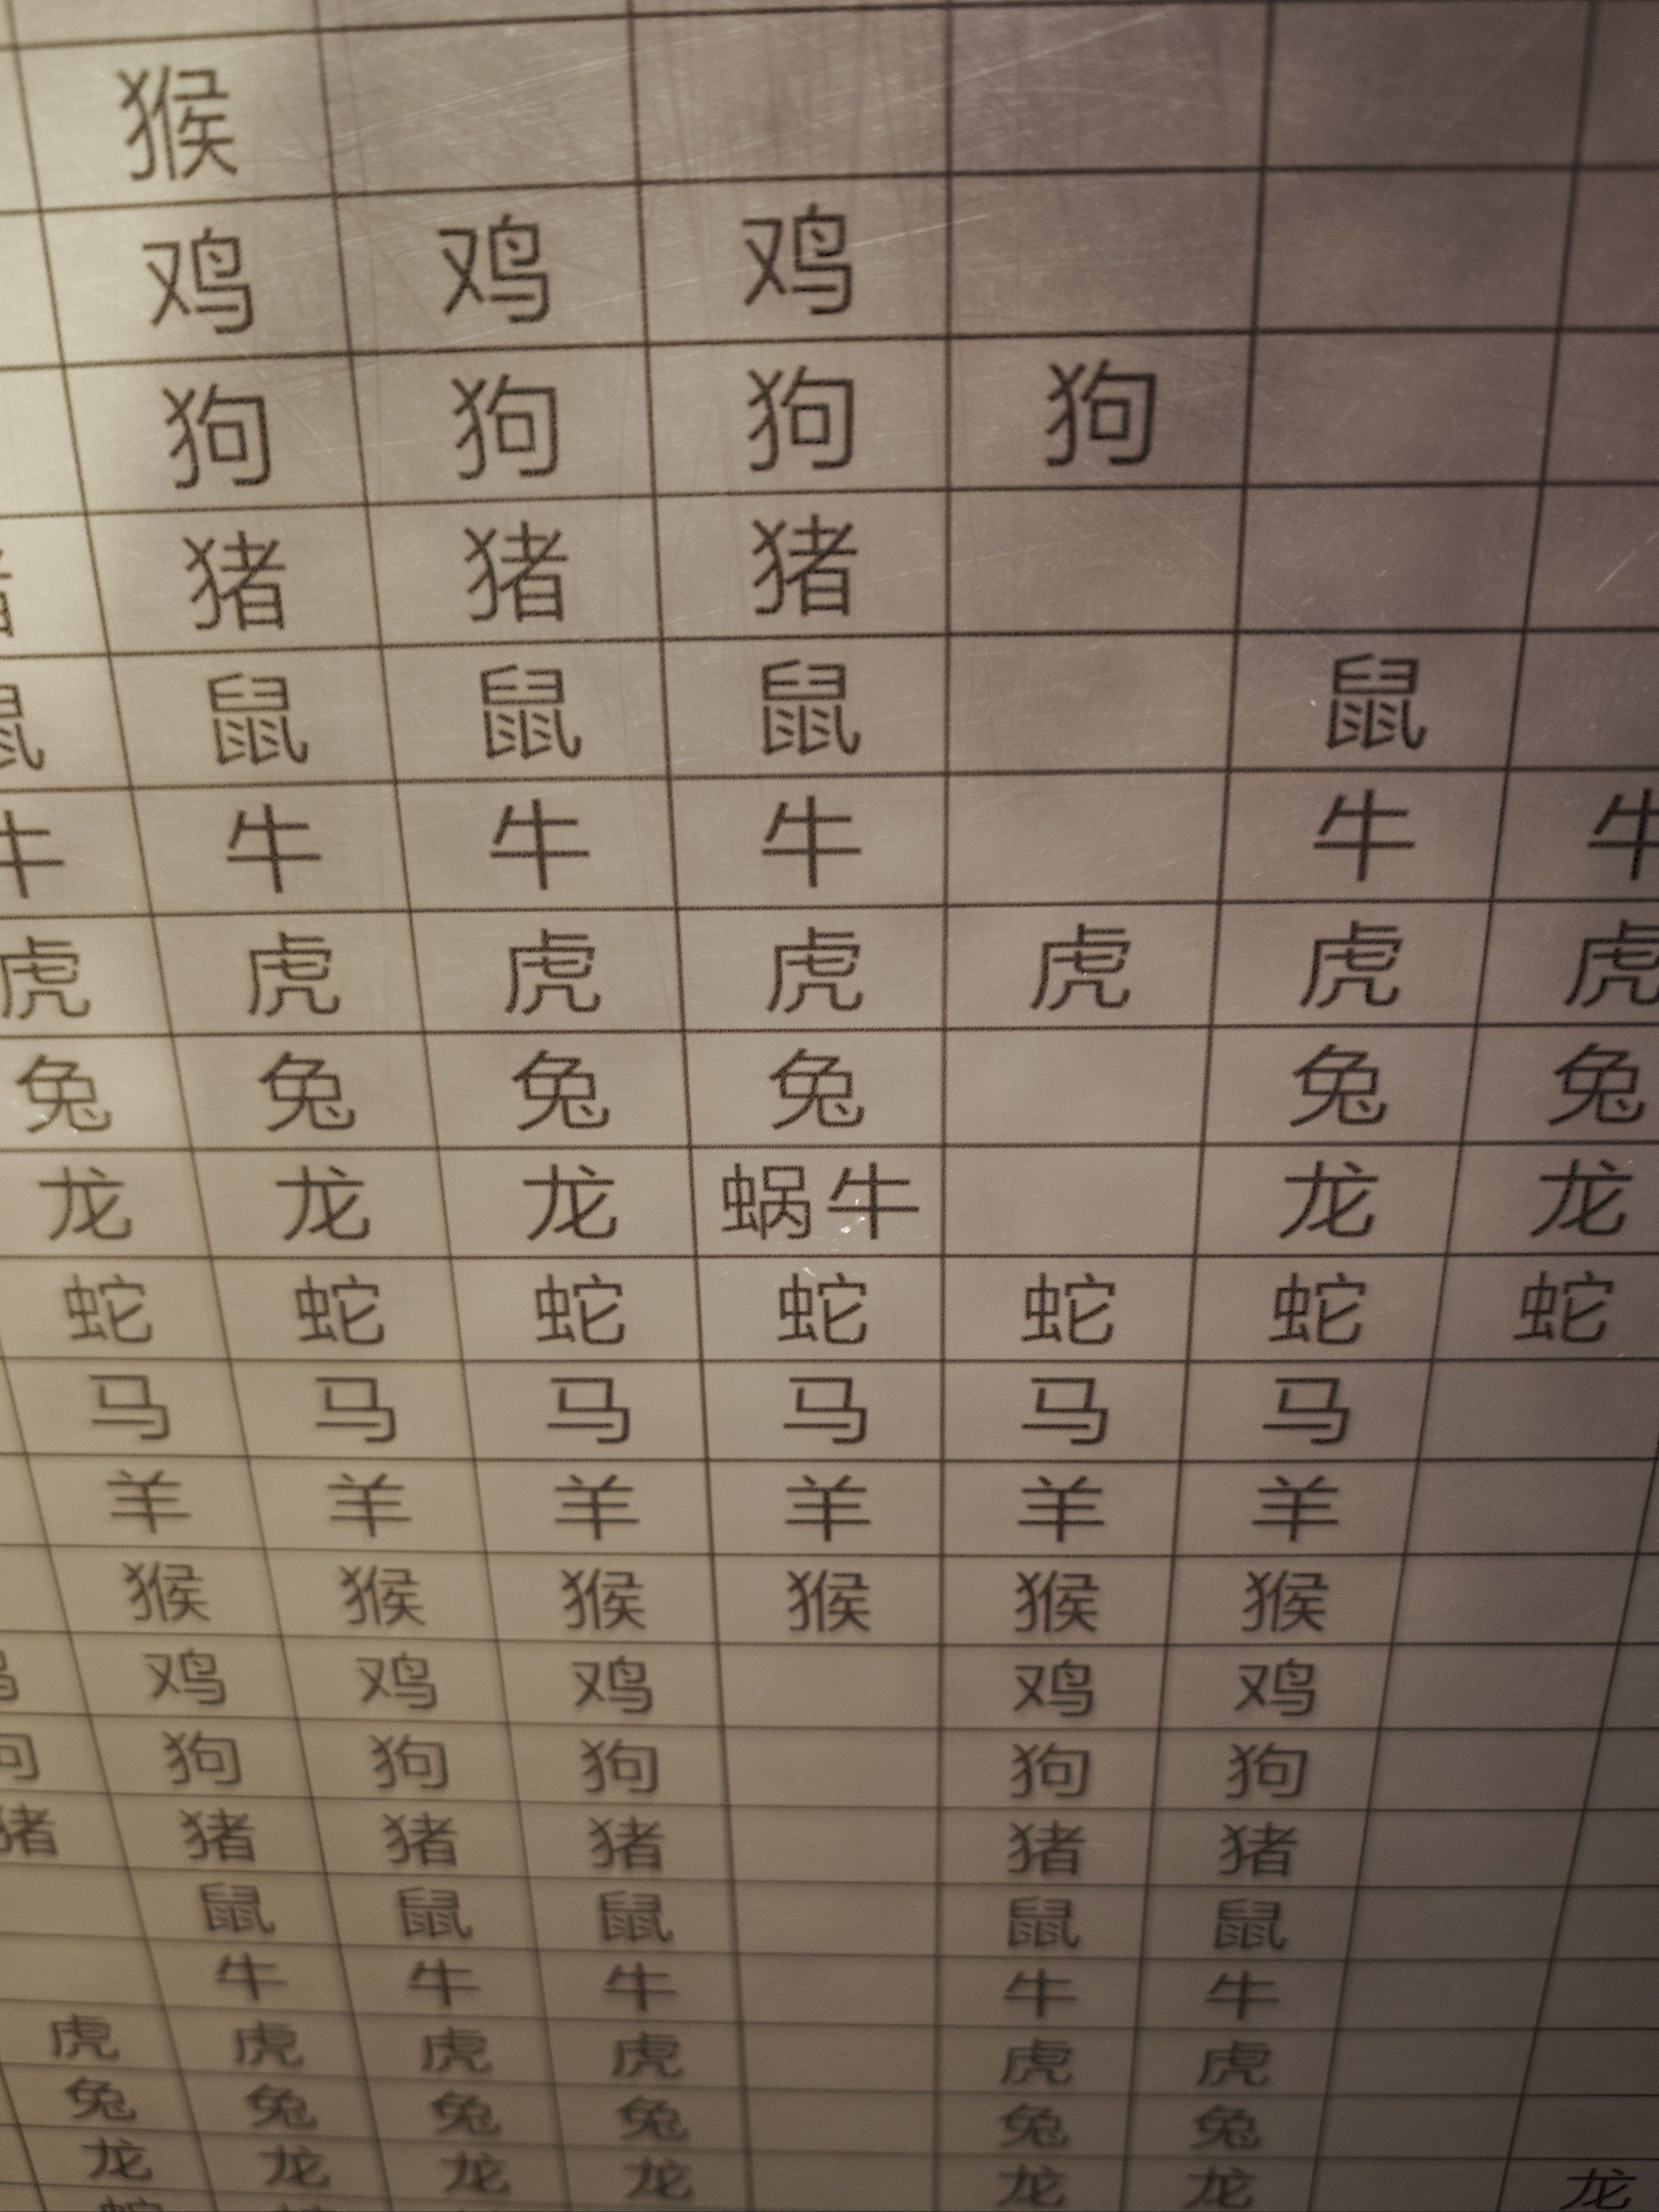 猴
鸡 鸡 鸡
狗 狗 狗 狗
猪 猪 猪 猪
鼠 鼠 鼠 鼠 鼠
牛 牛 牛 牛 牛 牛
虎 虎 虎 虎 虎 虎 虎
兔 兔 兔 兔 兔 兔
龙 龙 龙 蜗牛 龙 龙
蛇 蛇 蛇 蛇 蛇 蛇 蛇
马 马 马 马 马 马
羊 羊 羊 羊 羊 羊
猴 猴 猴 猴 猴 猴
鸡 鸡 鸡 鸡 鸡 鸡
狗 狗 狗 狗 狗 狗
猪 猪 猪 猪 猪 猪
鼠 鼠 鼠 鼠 鼠
牛 牛 牛 牛 牛
虎 虎 虎 虎 虎 虎
兔 兔 兔 兔 兔 兔
龙 龙 龙 龙 龙 龙 龙
蛇